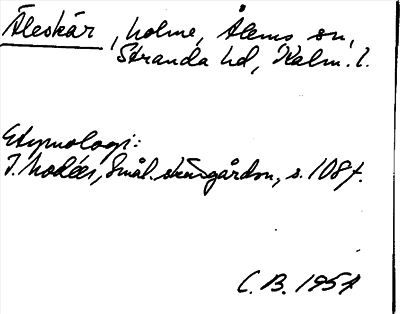 Äleskär, holme, Ålems sn,
Stranda hd, Kalm. l.
Etymologi:
I. Modéer, Smål. skärgårdsn, s. 108 f.
C. B. 195